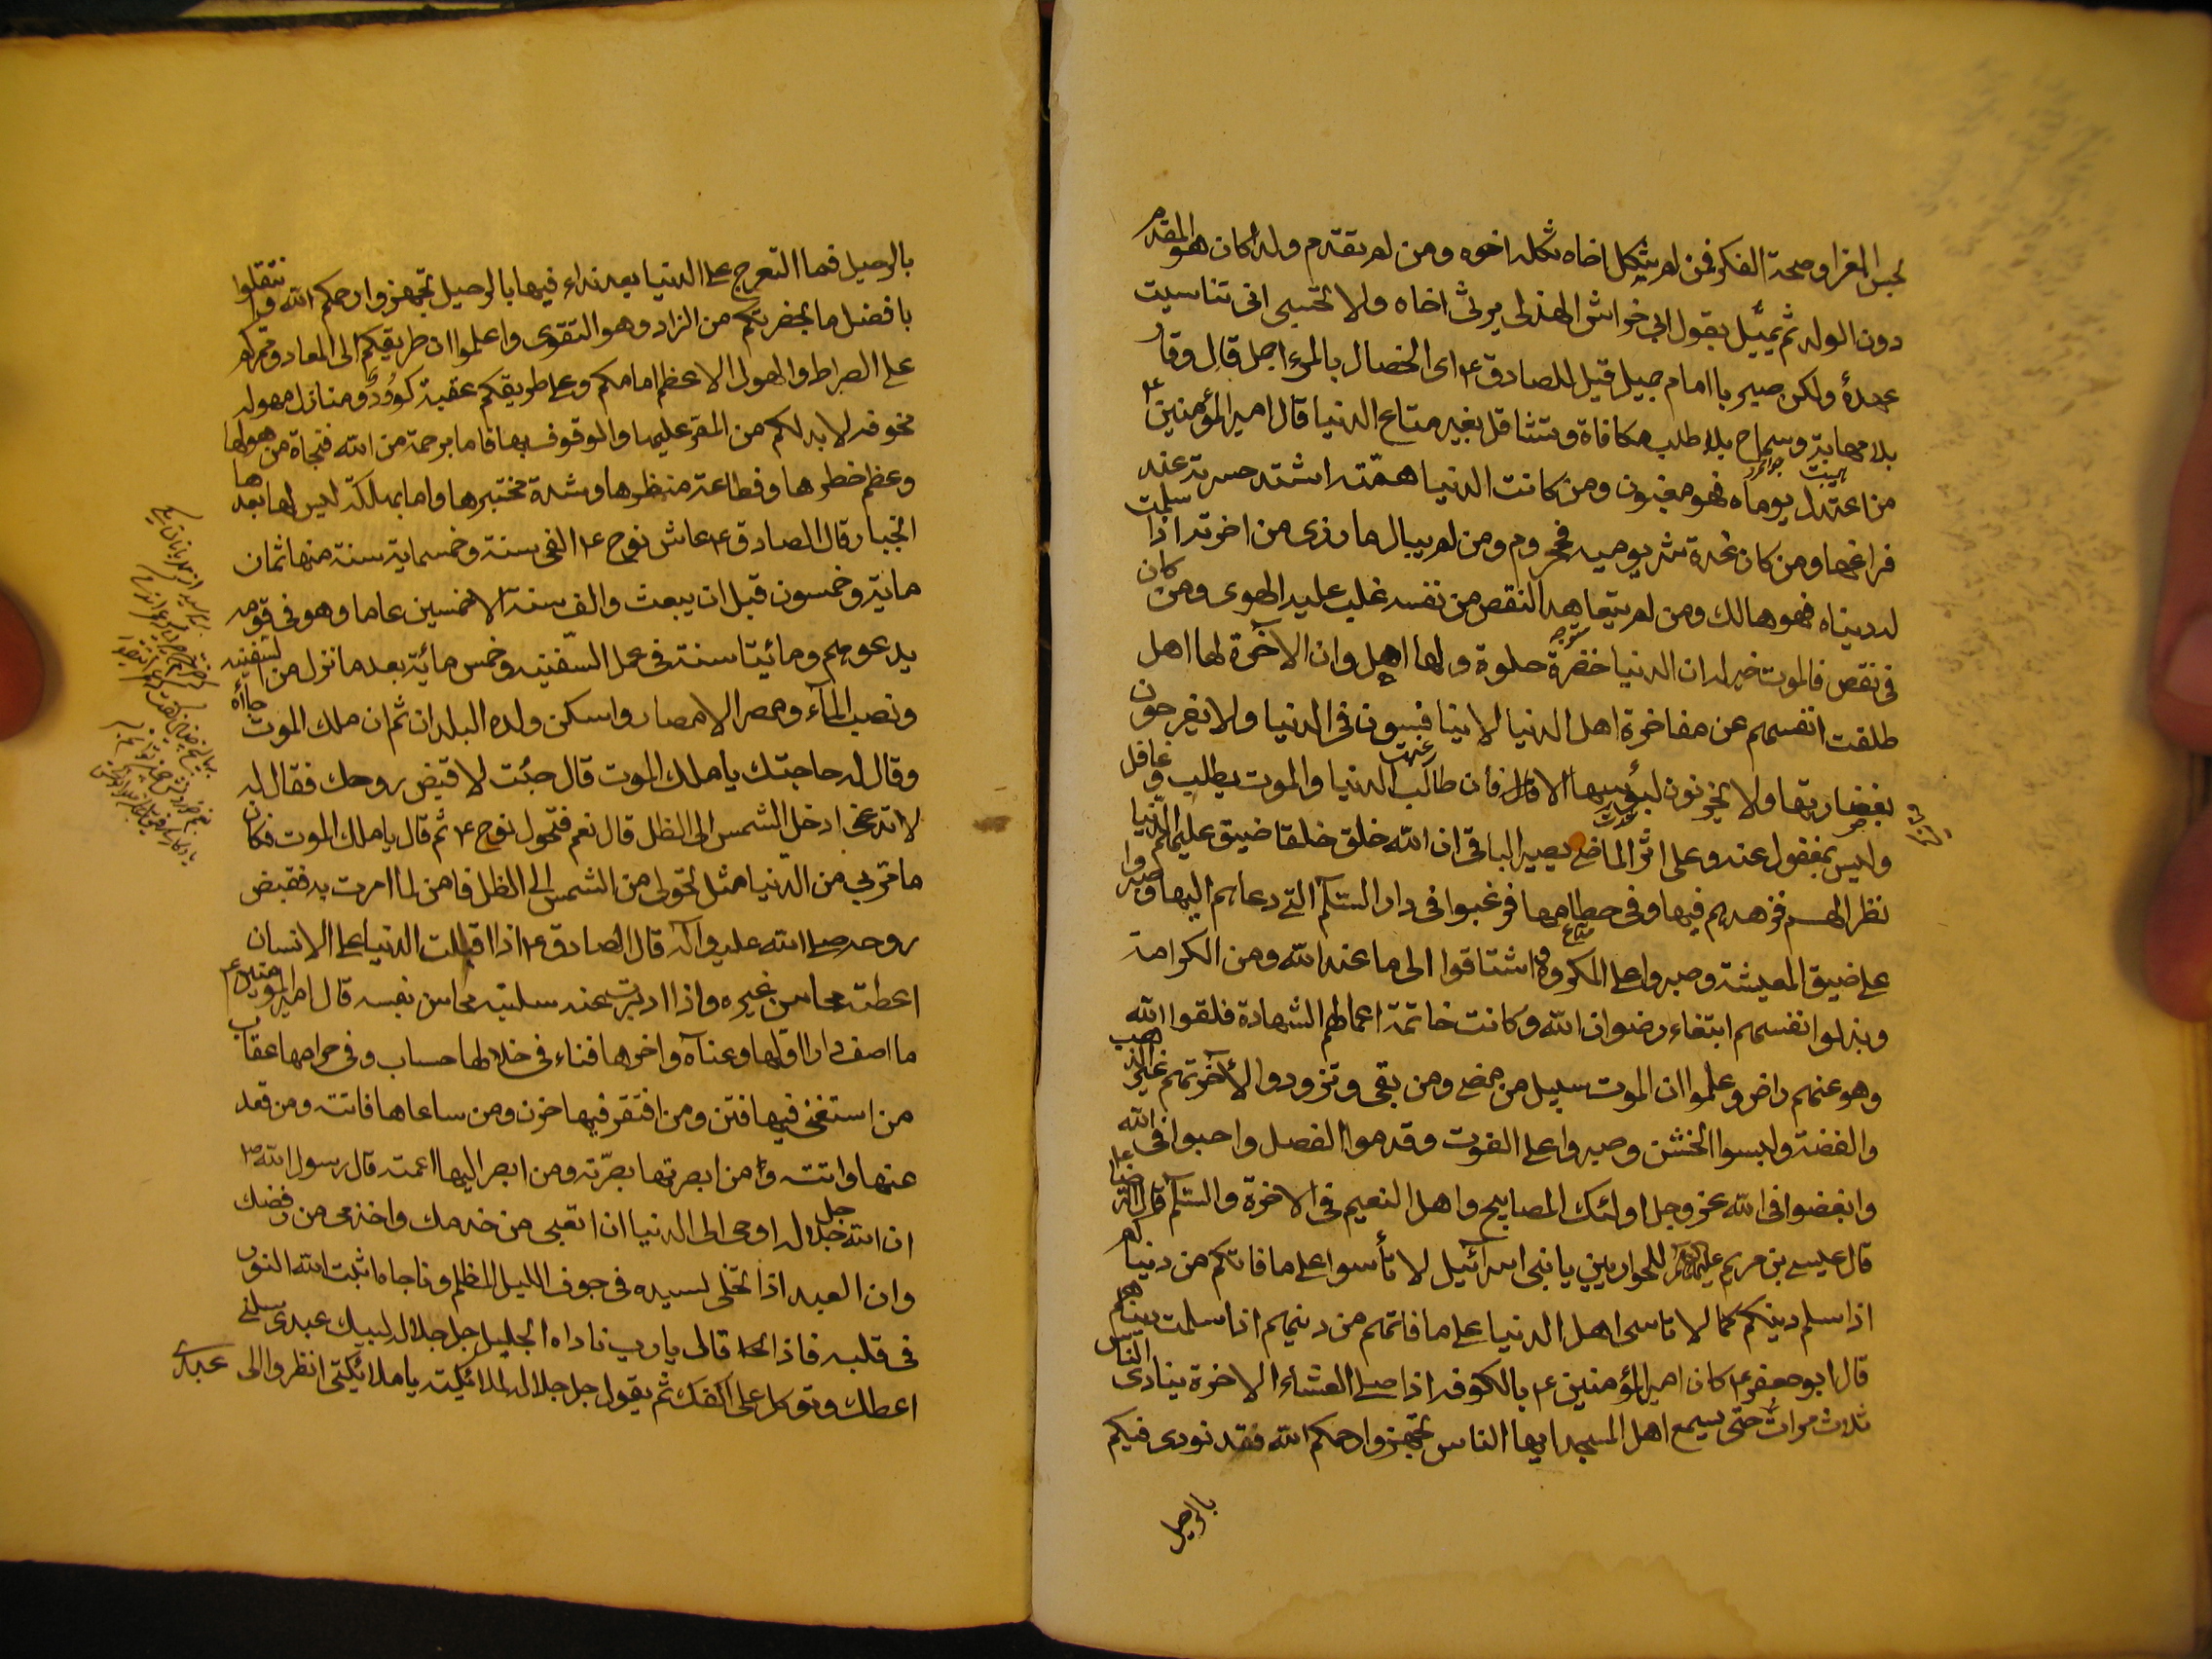 لحسن العزا وصحة الفكر فمن لم يثكل اخاه ثكله اخوه ومن لم يقدم ولدا كان هو المقدم
دون الولد ثم يميل بقول ابى خراش الهذلى يرثى اخاه ولا تحسبى انى تناسيت
عهدهٔ ولكن صبرى يا امام جميل قيل للصادق ع اى الخصال بالمرء اجمل قال وقار
بلا مهابة وسماح بلا طلب مكافاة وتشاقل بغير متاع الدنيا قال امير المؤمنين ع
من اعتدل يوماه فهو مغبون ومن كانت الدنيا همّته اشتد حسرته عند
فراغها ومن كان غده شر يوميه فمحروم ومن لم يبال ما رزى من اخرته اذا سلمت
له دنياه فهو هالك ومن لم يتعاهد النقص من نفسه غلب عليه الهوى ومن كان
فى نقص فالموت خير له ان الدنيا خضرة حلوة ولها اهل وان الآخرة لها اهل
طلفت انفسهم عن مفاخرة اهل الدنيا لا يتنافسون فى الدنيا ولا يفرحون
بغضارتها ولا يحزنون لبؤسها فان طالب الدنيا والموت يطلب وغافل
وليس بمغفول عنه وعلى اثر الماضى يصير الباقى ان الله خلق خلقا ضيق عليهم الدنيا
نظرا لهم فزهدهم فيها وفى حطامها فرغبوا فى دار السّلام التى دعاهم اليها وصبروا
على ضيق المعيشة وصبروا على المكروه واشتاقوا الى ما عند الله ومن الكرامة
وبذلوا انفسهم ابتغاء رضوان الله وكانت خاتمة اعمالهم الشهادة فلقوا الله
وهو عنهم راض وعلموا ان الموت سبيل من مضى ومن بقى وتزودوا لآخرتهم غير الذهب
والفضة ولبسوا الخشن وصبروا على القوت وقدموا الفضل واحبوا فى الله
وابغضوا فى الله عز وجل اولئك المصابيح واهل النعيم فى الاخرة والسّلام قال الرضا ع
قال عيسى بن مريم للحواريين يا بنى اسرآئيل لا تأسوا على ما فاتكم من دنياكم
اذا سلم دينكم كما لا تاسى اهل الدنيا على ما فاتهم من دينهم اذا سلمت دنياهم
قال ابو جعفر ع كان امير المؤمنين ع بالكوفه اذا صلى العشاء الاخرة ينادى الناس
ثلاث مرات حتى يسمع اهل المسجد ايها الناس تجهزوا رحمكم الله فقد نودى فيكم
بالرحيل
بالرحيل فما التعرج على الدنيا بعد نداء فيها بالرحيل تجهزوا رحمكم الله وانتقلوا
بافضل ما بحضرتكم من الزاد وهو التقوى واعلموا ان طريقكم الى المعاد وممركم
على الصراط والهول الاعظم امامكم وعلى طريقكم عقبة كؤود ومنازل مهوله
مخوفه لا بد لكم من الممر عليها والوقوف بها فاما برحمة من الله فنجاة من هولها
وعظم خطرها وفظاعة منظرها وشدة مختبرها واما بهلكة ليس لها بعدها
انجبار قال الصادق ع عاش نوح ع الفى سنة وخمسماية سنة منها ثمان
ماية وخمسون قبل ان يبعث والف سنة الا خمسين عاما وهو فى قومه
يدعوهم ومائيتا سنة فى عمل السّفينه وخمس مائة بعد ما نزل من السّفينه
ونصب المآء ومصر الامصار واسكن ولده البلدان ثم ان ملك الموت جاءه
وقال له حاجتك يا ملك الموت قال جئت لاقبض روحك فقال له
لا تدعنى ادخل الشمس الى الظل قال نعم فتحول نوح ع ثم قال يا ملك الموت فكان
ما مر بى من الدّنيا مثل تحولى من الشمس الى الظل فامض لما امرت به فقبض
روحه صلى الله عليه وآله قال الصادق ع اذا اقبلت الدنيا على الانسان
اعطته محاسن غيره واذا ادبرت عنه سلبته محاسن نفسه قال امير المؤمنين ع
ما اصف دارا اولها وعنآء واخرها فناء فى حلالها حساب وفى حرامها عقاب
من استغنى فيها فتن ومن افتقر فيها حزن ومن ساعاها فاتته ومن قعد
عنها واتته ومن ابصر بها بصّرته ومن ابصر اليها اعمته قال رسول الله ص
ان الله جل جلاله اوحى الى الدنيا ان اتعبى من خدمك واخدمى من رفضك
وان العبد اذا تخلى لسيده فى جوف الليل المظلم وناجاه اثبت الله النور
فى قلبه فاذا قال يا رب ناداه الجليل جل جلاله لبيك عبدى سلنى
اعطك وتوكل على اكفك ثم يقول جل جلاله لملائكته يا ملائكتى انظروا الى عبدى